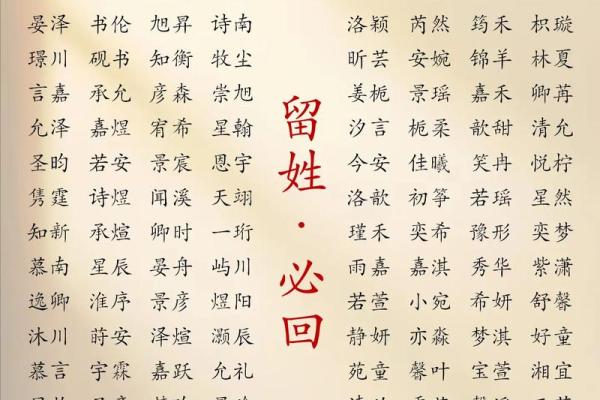 晏泽 书伦 旭昇 诗南
璟川 砚书 知衡 牧尘
言嘉 承允 彦森 崇旭
允泽 嘉煜 宥希 星翰
圣昀 若安 景宸 恩宇
隽霆 诗煜 闻溪 天翊
知新 承煊 卿时 一珩
慕南 星辰 晏舟 屿川
逸卿 淮序 景彦 煜阳
沐川 莳安 泽煊 灏辰
慕言 宇霖 嘉跃 允礼
留姓·必回
洛颖 芮然 筠禾 枳璇
昕芸 安婉 锦羊 林夏
姜栀 景瑶 嘉禾 卿苒
汐言 栀柔 歆甜 清允
今安 佳曦 笑冉 悦柠
洛歆 初筝 若瑶 星然
瑾禾 奕希 豫形 奕梦
雨嘉 嘉淇 秀华 紫潇
若萱 小宛 希妍 舒馨
静妍 亦淼 梦淇 好童
苑童 馨叶 宝萱 湘宜